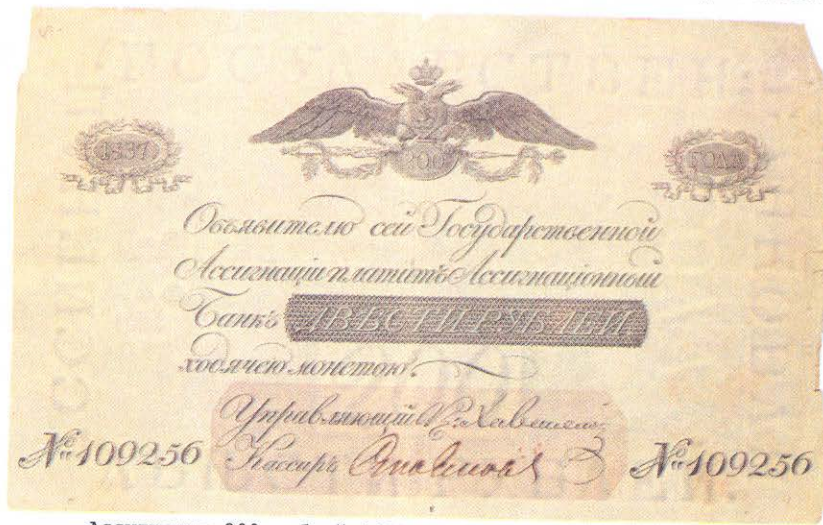 1837
200
ГОДА
Объявителю сей Государственной
Ассигнаціи платитъ Ассигнаціонный
Банкъ ДВѢСТИ РУБЛЕЙ
ходячею монетою.
Управляющій
№ 109256 Кассиръ № 109256